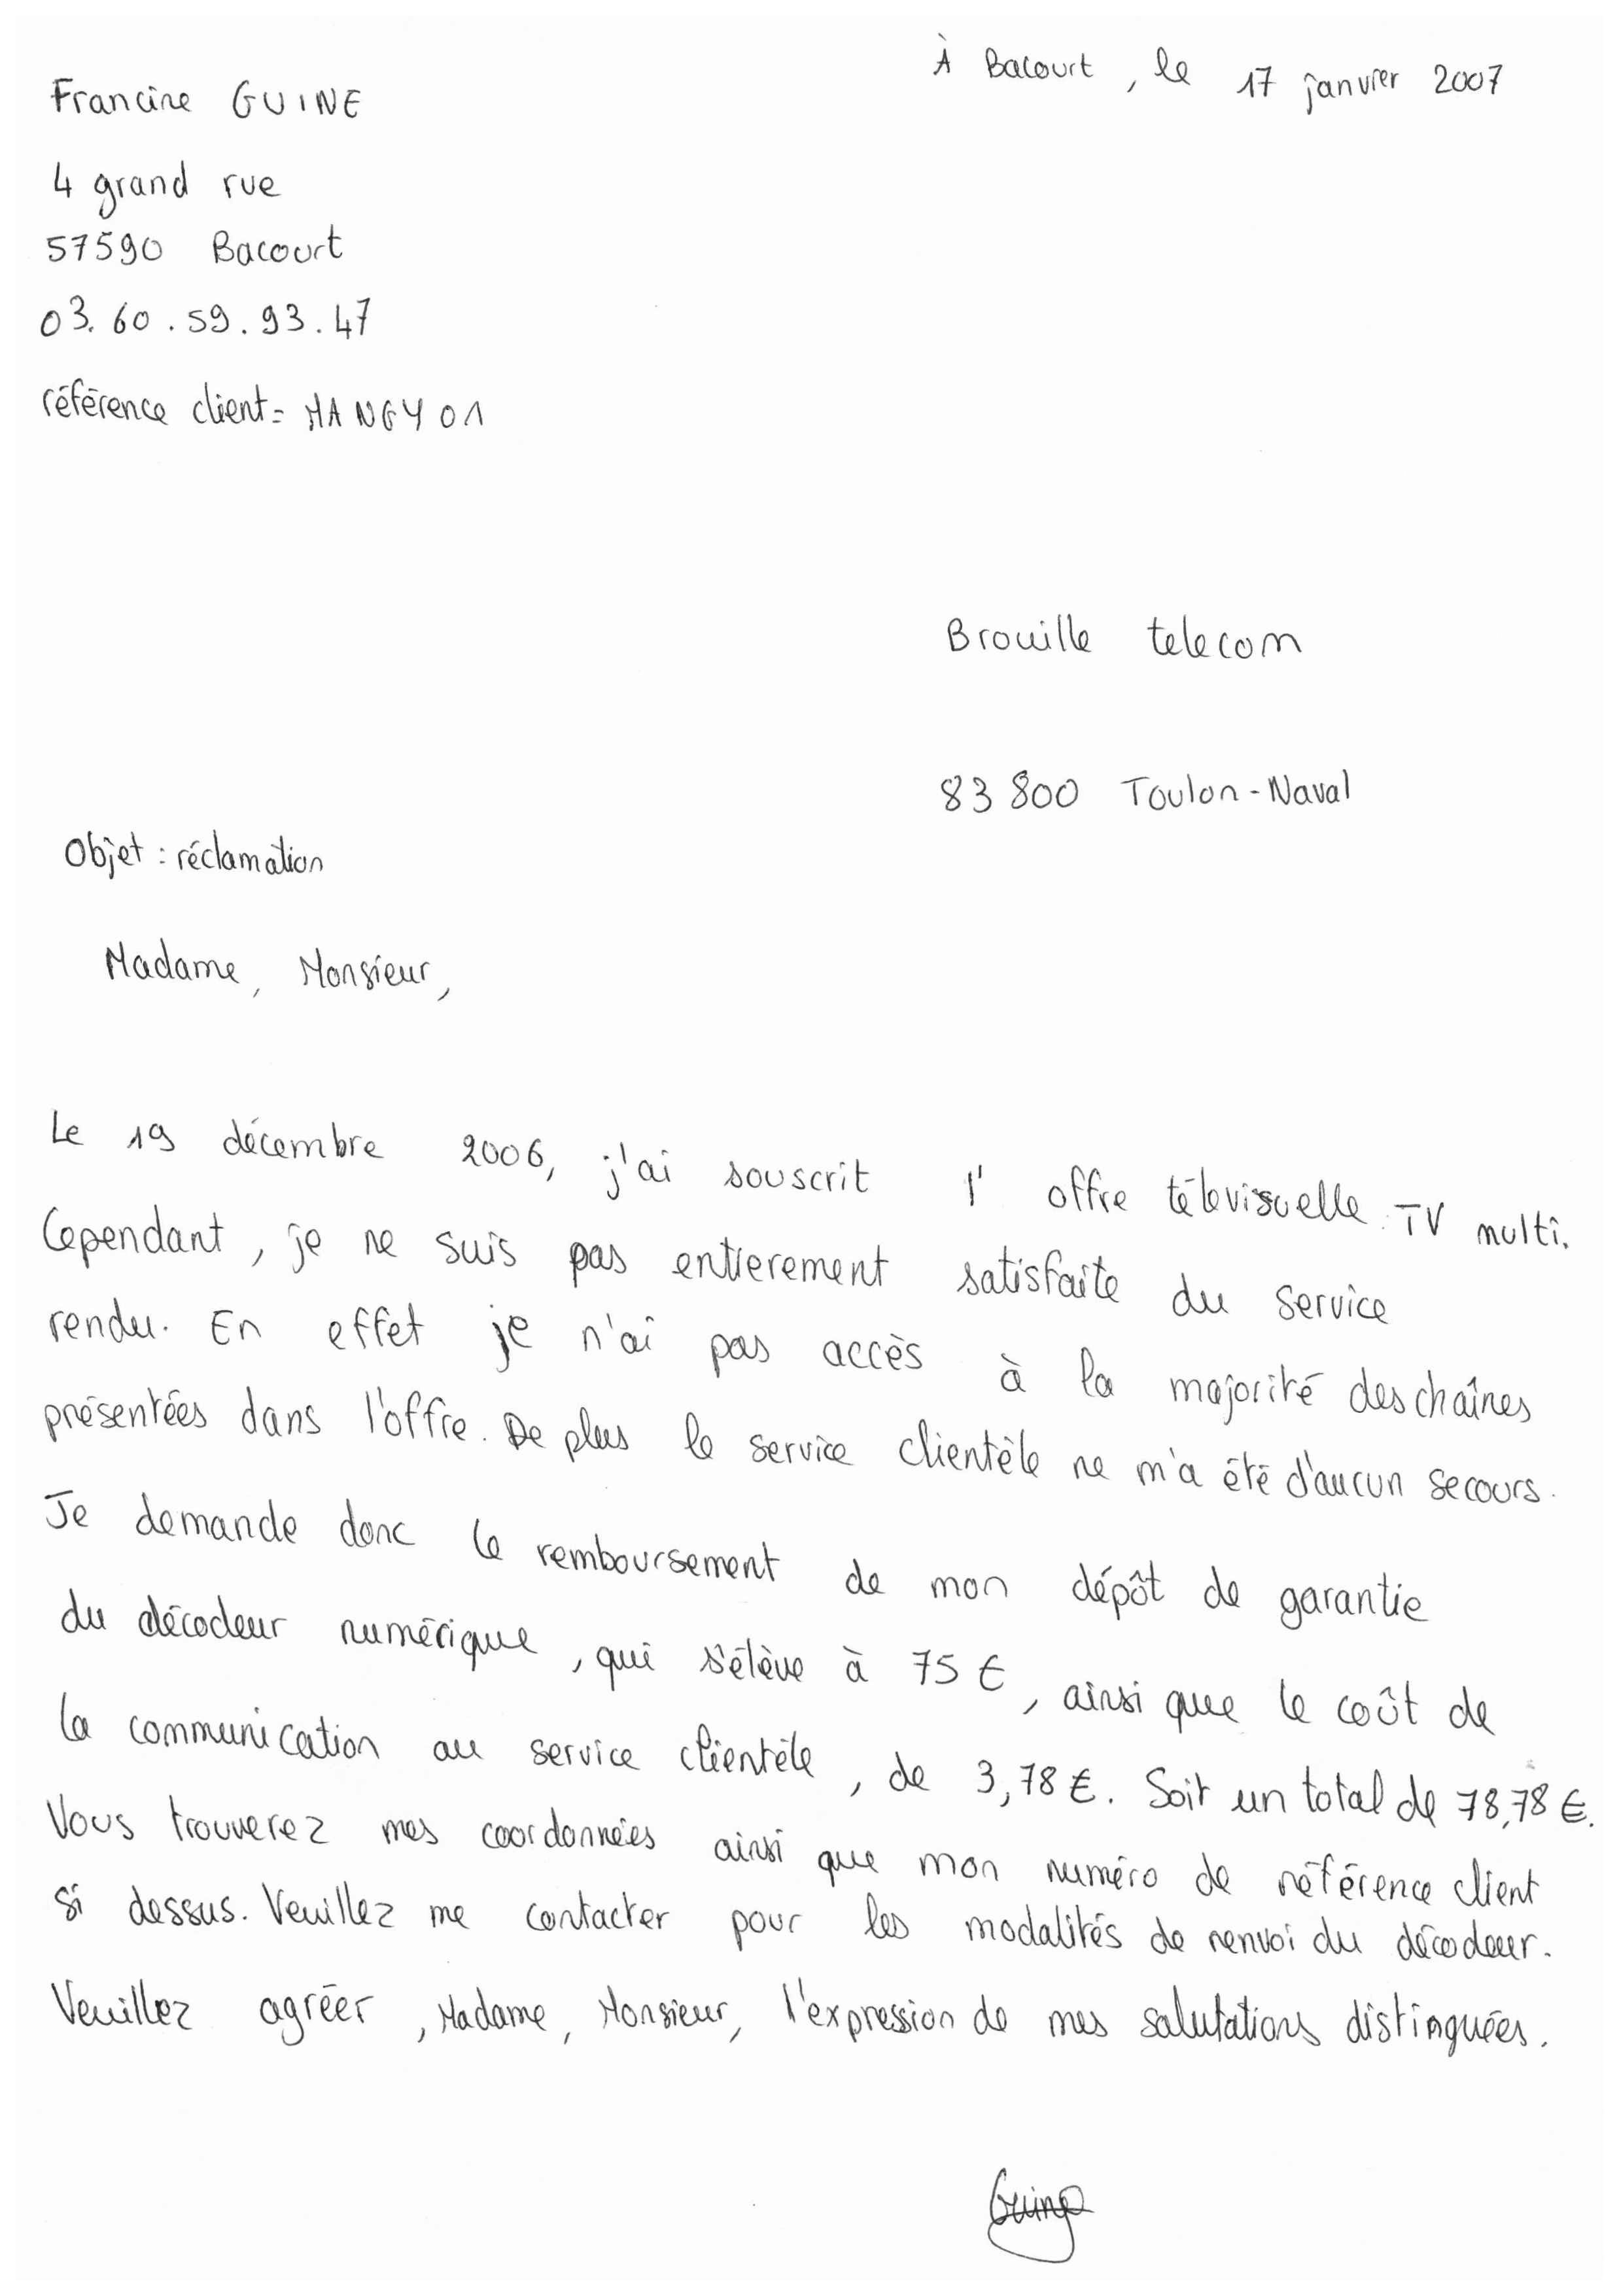 À Bacourt, le 17 janvier 2007
Francine GUINE
4 grand rue
57590 Bacourt
03.60.59.93.47
référence client = MANGY01
Brouille telecom
83 800 Toulon-Naval
Objet : réclamation
Madame, Monsieur,
Le 19 décembre 2006, j'ai souscrit l'offre télévisuelle TV multi.
Cependant, je ne suis pas entierement satisfaite du service
rendu. En effet je n'ai pas accès à la majorité des chaînes
présentées dans l'offre. De plus le service clientèle ne m'a été d'aucun secours.
Je demande donc le remboursement de mon dépôt de garantie
du décodeur numérique, qui s'élève à 75 €, ainsi que le coût de
la communication au service clientèle, de 3,78 €. Soit un total de 78,78 €.
Vous trouverez mes coordonnées ainsi que mon numéro de référence client
si dessus. Veuillez me contacter pour les modalités de renvoi du décodeur.
Veuillez agréer, Madame, Monsieur, l'expression de mes salutations distinguées.
Guine